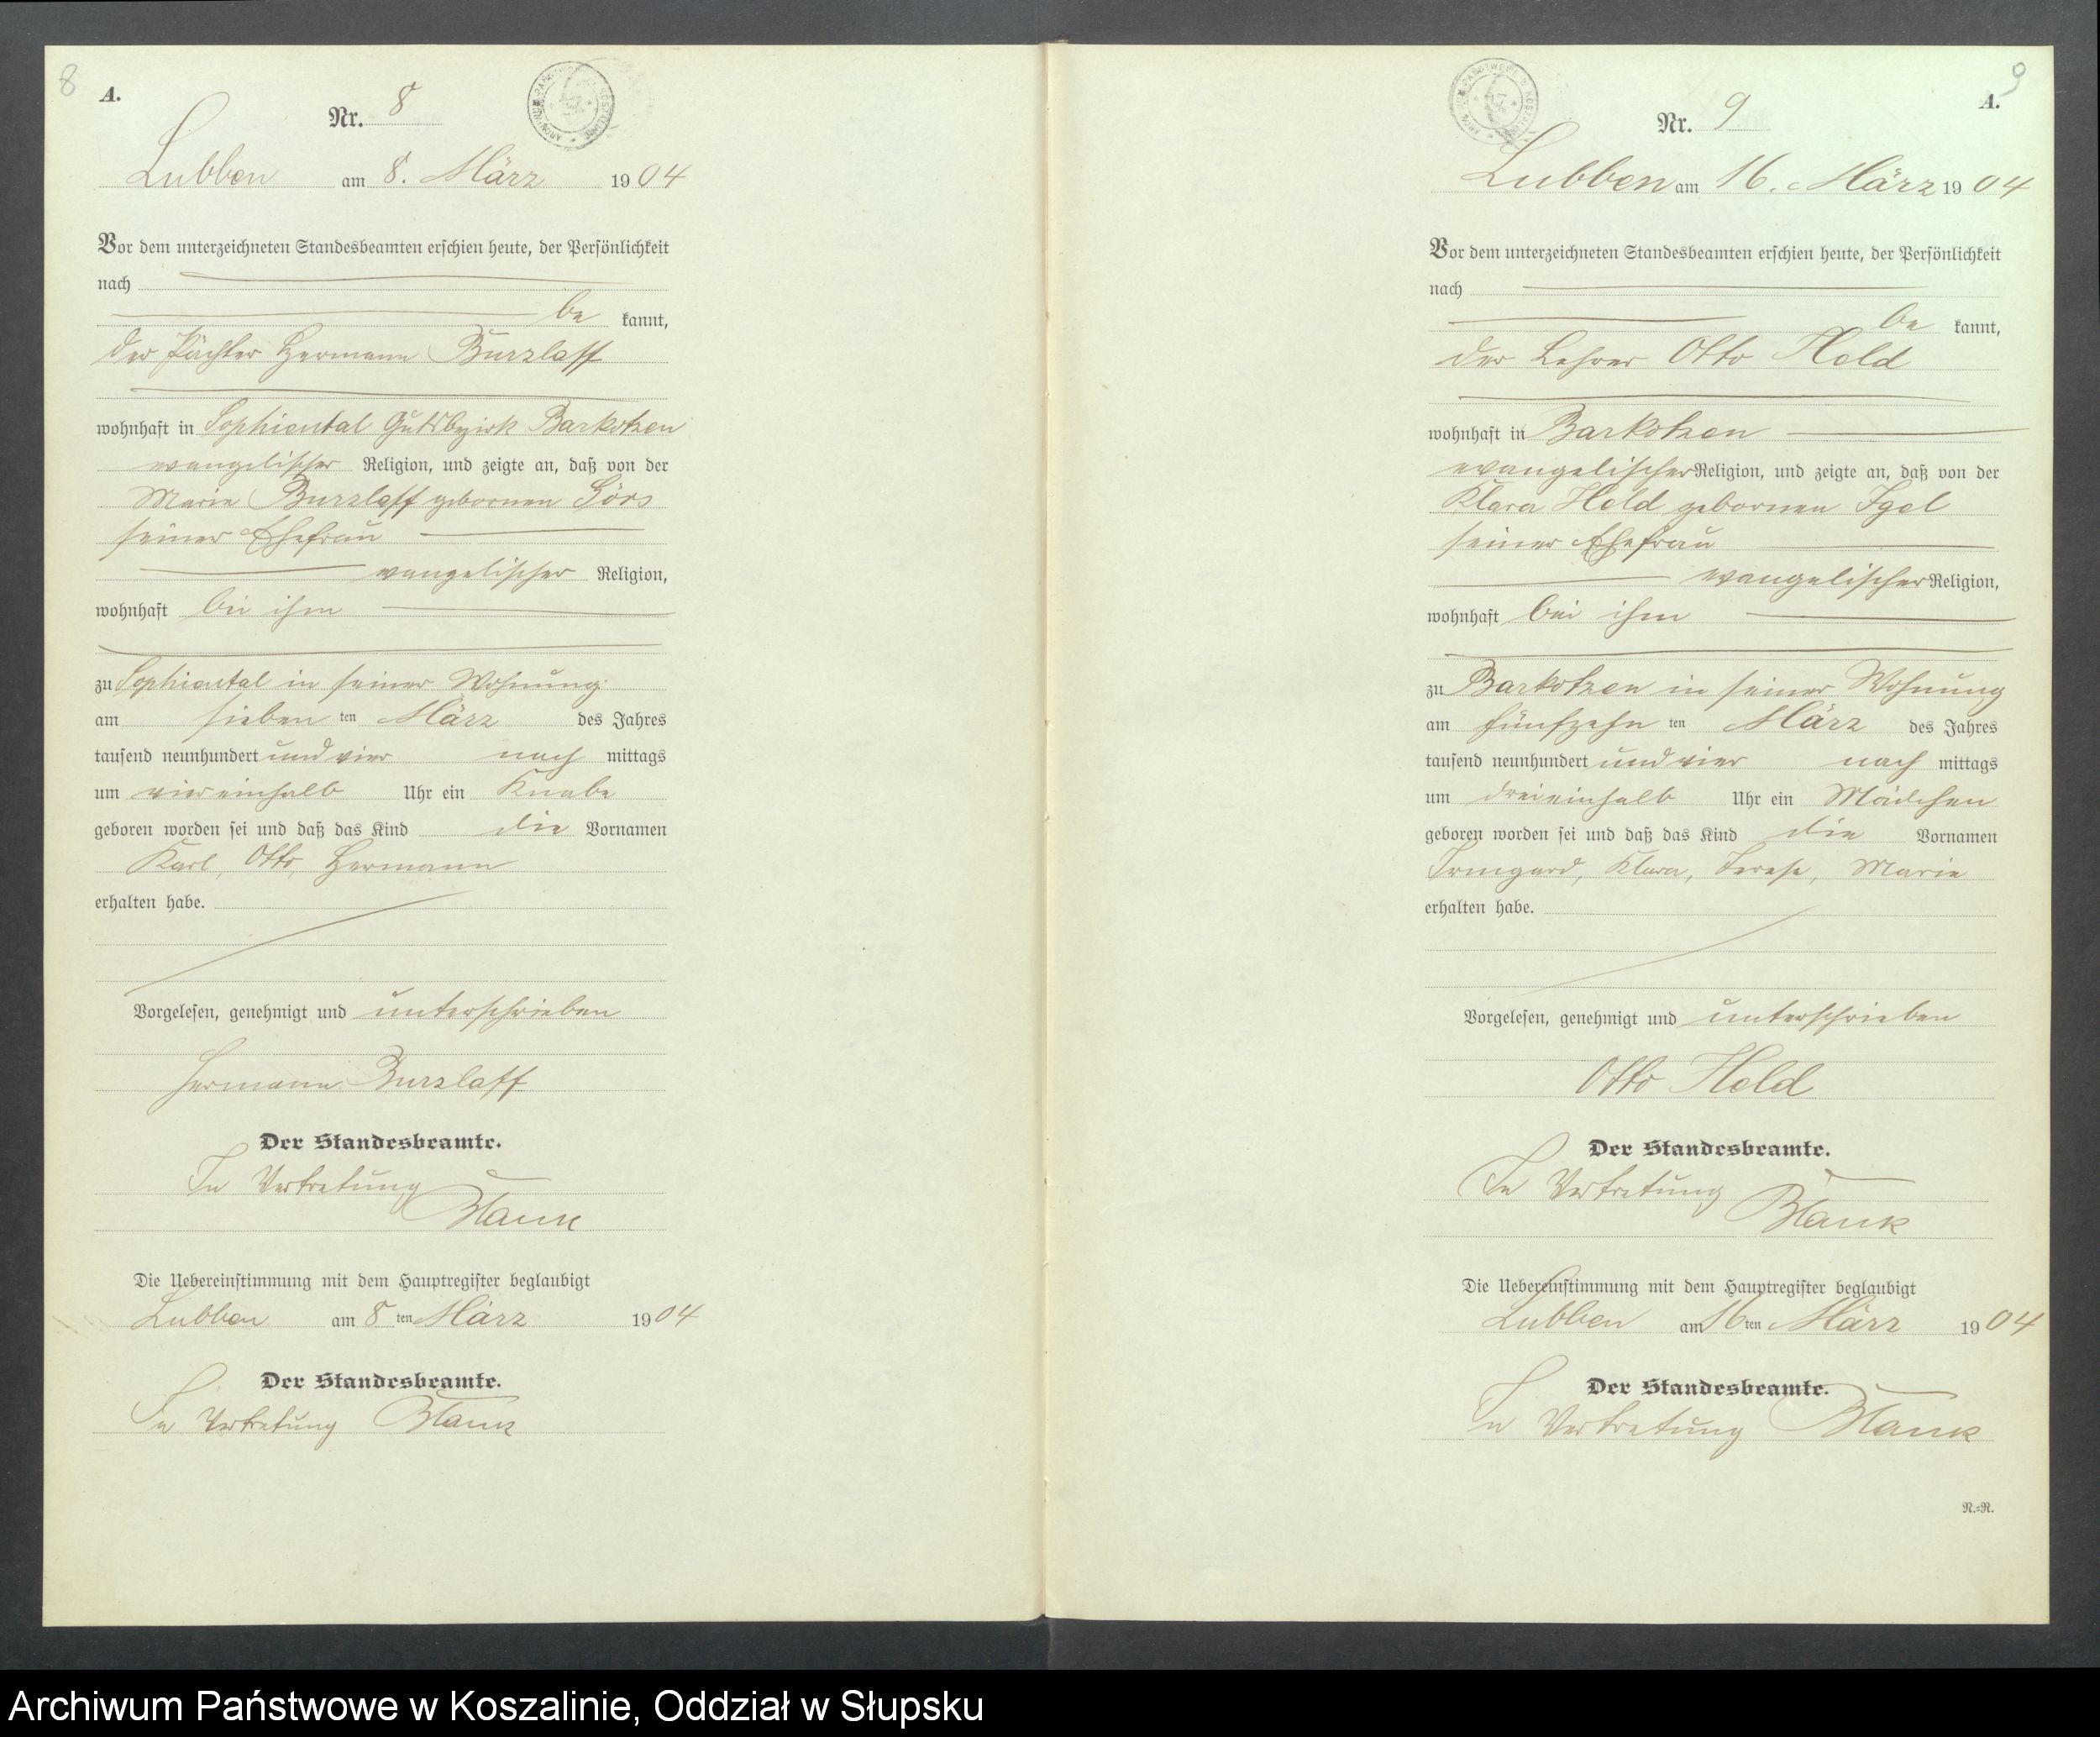 8
A.
Nr. 8
Lubben am 8. März 1904
Vor dem unterzeichneten Standesbeamten erschien heute, der Persönlichkeit
nach
be kannt,
der Pächter Hermann Burzlaff
wohnhaft in Sophiental Gutsbezirk Barkotzen
evangelischer Religion, und zeigte an, daß von der
Marie Burzlaff gebornen Görs
seiner Ehefrau
evangelischer Religion,
wohnhaft bei ihm
zu Sophiental in seiner Wohnung
am sieben ten März des Jahres
tausend neunhundert und vier nach mittags
um viereinhalb Uhr ein Knabe
geboren worden sei und daß das Kind die Vornamen
Karl, Otto, Hermann
erhalten habe.
Vorgelesen, genehmigt und unterschrieben
Hermann Burzlaff
Der Standesbeamte.
In Vertretung
Blank
Die Uebereinstimmung mit dem Hauptregister beglaubigt
Lubben am 8 ten März 1904
Der Standesbeamte.
In Vertretung Blank
9
A.
Nr. 9
Lubben am 16. März 1904
Vor dem unterzeichneten Standesbeamten erschien heute, der Persönlichkeit
nach
be kannt,
der Lehrer Otto Held
wohnhaft in Barkotzen
evangelischer Religion, und zeigte an, daß von der
Klara Held gebornen Igel
seiner Ehefrau
evangelischer Religion,
wohnhaft bei ihm
zu Barkotzen in seiner Wohnung
am fünfzehn ten März des Jahres
tausend neunhundert und vier nach mittags
um dreieinhalb Uhr ein Mädchen
geboren worden sei und daß das Kind die Vornamen
Irmgard, Klara, Terese, Marie
erhalten habe.
Vorgelesen, genehmigt und unterschrieben
Otto Held
Der Standesbeamte.
In Vertretung
Blank
Die Uebereinstimmung mit dem Hauptregister beglaubigt
Lubben am 16 ten März 1904
Der Standesbeamte.
In Vertretung Blank
R.=R.
Archiwum Państwowe w Koszalinie, Oddział w Słupsku